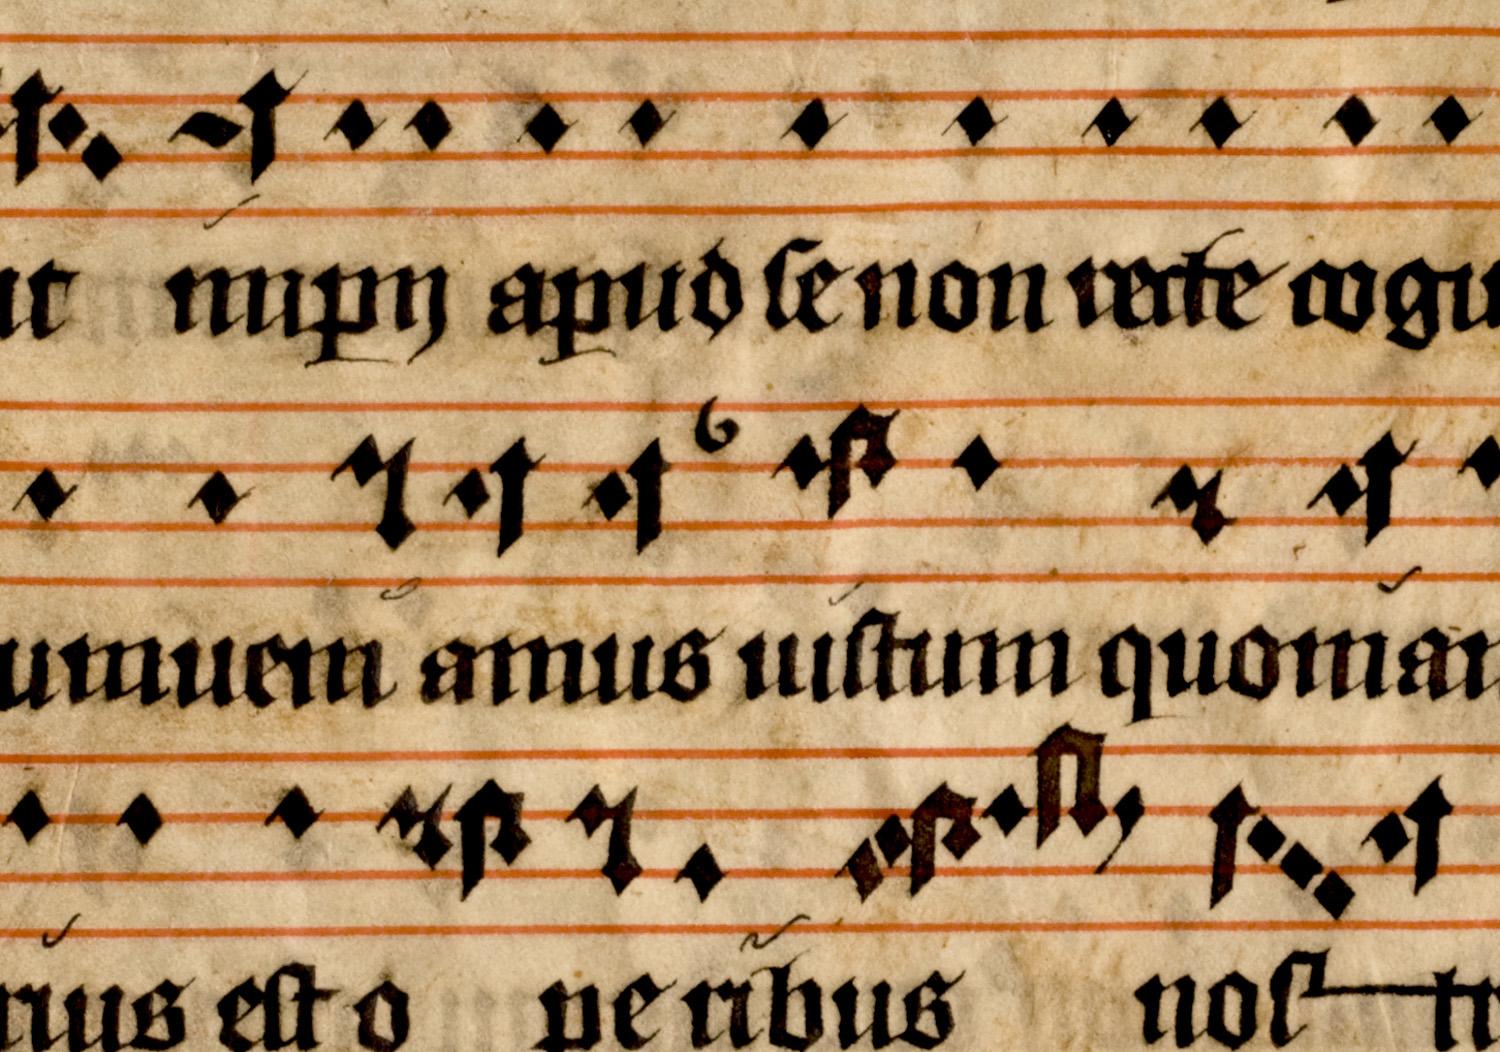 ut impij apud se non recte cogi
umuem amus iustum quonian
rius est o pe ribus nos tr